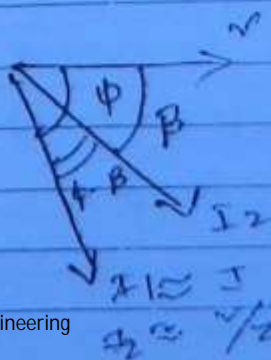 v
φ
β
φ-β
I2
I1 ≈ I
I2 ≈ v/z
ineering